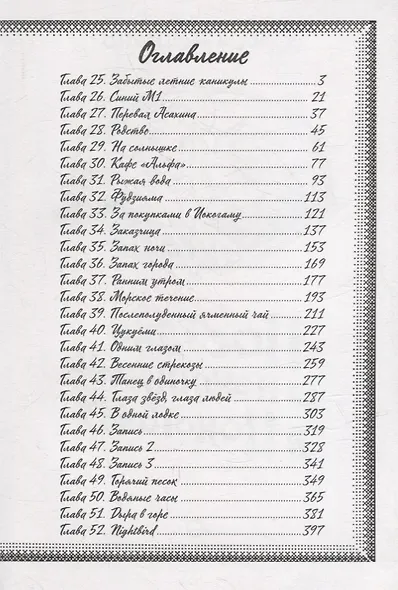 Оглавление
Глава 25. Забытые летние каникулы 3
Глава 26. Синий М1 21
Глава 27. Перевал Асахина 37
Глава 28. Родство 45
Глава 29. На солнышке 61
Глава 30. Кафе «Альфа» 77
Глава 31. Рыжая вода 93
Глава 32. Фудзияма 113
Глава 33. За покупками в Йокогаму 121
Глава 34. Заказчица 137
Глава 35. Запах ночи 153
Глава 36. Запах города 169
Глава 37. Ранним утром 177
Глава 38. Морское течение 193
Глава 39. Послеполуденный ячменный чай 211
Глава 40. Цукуёми 227
Глава 41. Одним глазом 243
Глава 42. Весенние стрекозы 259
Глава 43. Танец в одиночку 277
Глава 44. Глаза звёзд, глаза людей 287
Глава 45. В одной лодке 303
Глава 46. Запись 319
Глава 47. Запись 2 328
Глава 48. Запись 3 341
Глава 49. Горячий песок 349
Глава 50. Водяные часы 365
Глава 51. Дыра в горе 381
Глава 52. Nightbird 397